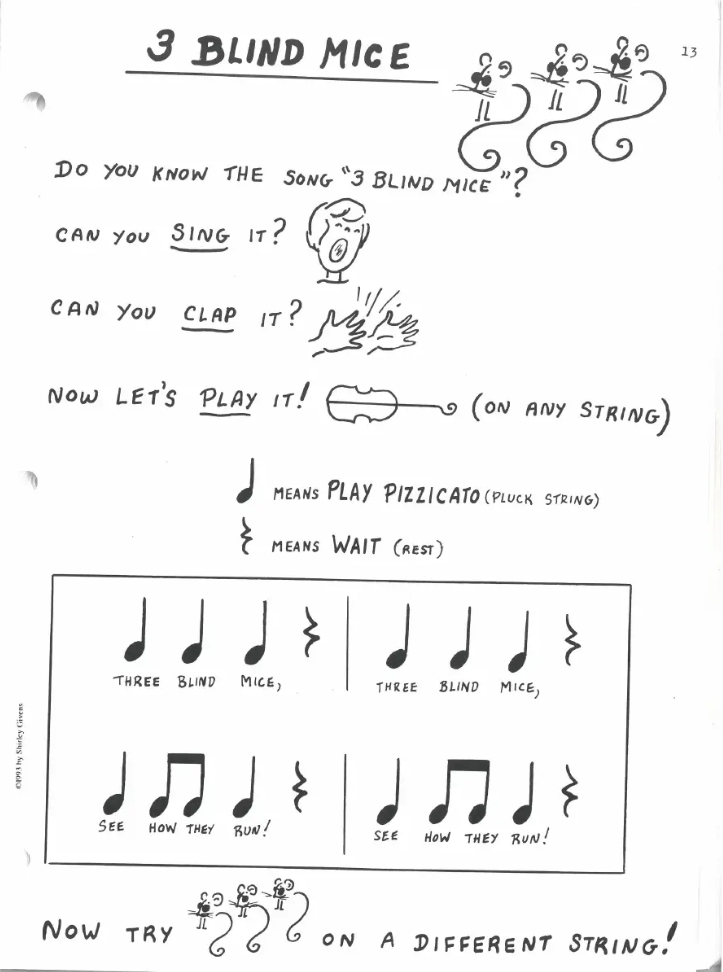 3 BLIND MICE
13
DO YOU KNOW THE SONG "3 BLIND MICE"?
CAN YOU SING IT?
CAN YOU CLAP IT?
NOW LET'S PLAY IT! (ON ANY STRING)
MEANS PLAY PIZZICATO (PLUCK STRING)
MEANS WAIT (REST)
THREE BLIND MICE, THREE BLIND MICE,
SEE HOW THEY RUN! SEE HOW THEY RUN!
©1993 by Shirley Givens
NOW TRY ON A DIFFERENT STRING!